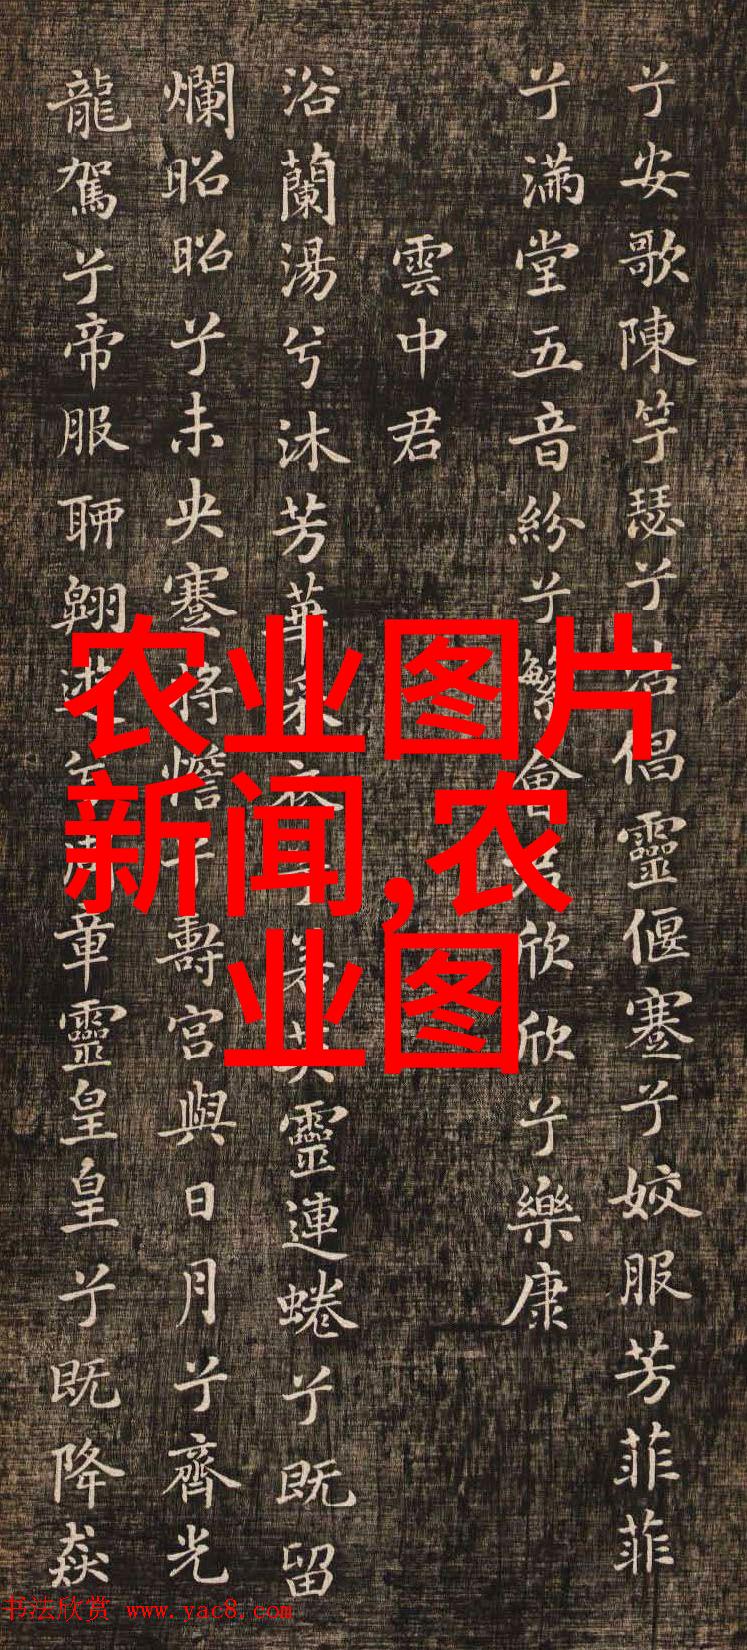 兮安歌陳竽瑟兮浩倡靈偃蹇兮姣服芳菲菲
兮滿堂五音紛兮繁會君欣欣兮樂康
雲中君
浴蘭湯兮沐芳華采衣兮若英靈連蜷兮既留
爛昭昭兮未央蹇將憺兮壽宮與日月兮齊光
龍駕兮帝服聊翱遊兮周章靈皇皇兮既降猋
农业图片
新闻,农
业图
书法欣赏 www.yac8.com